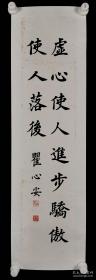 虛心使人進步驕傲
使人落後 瞿心安